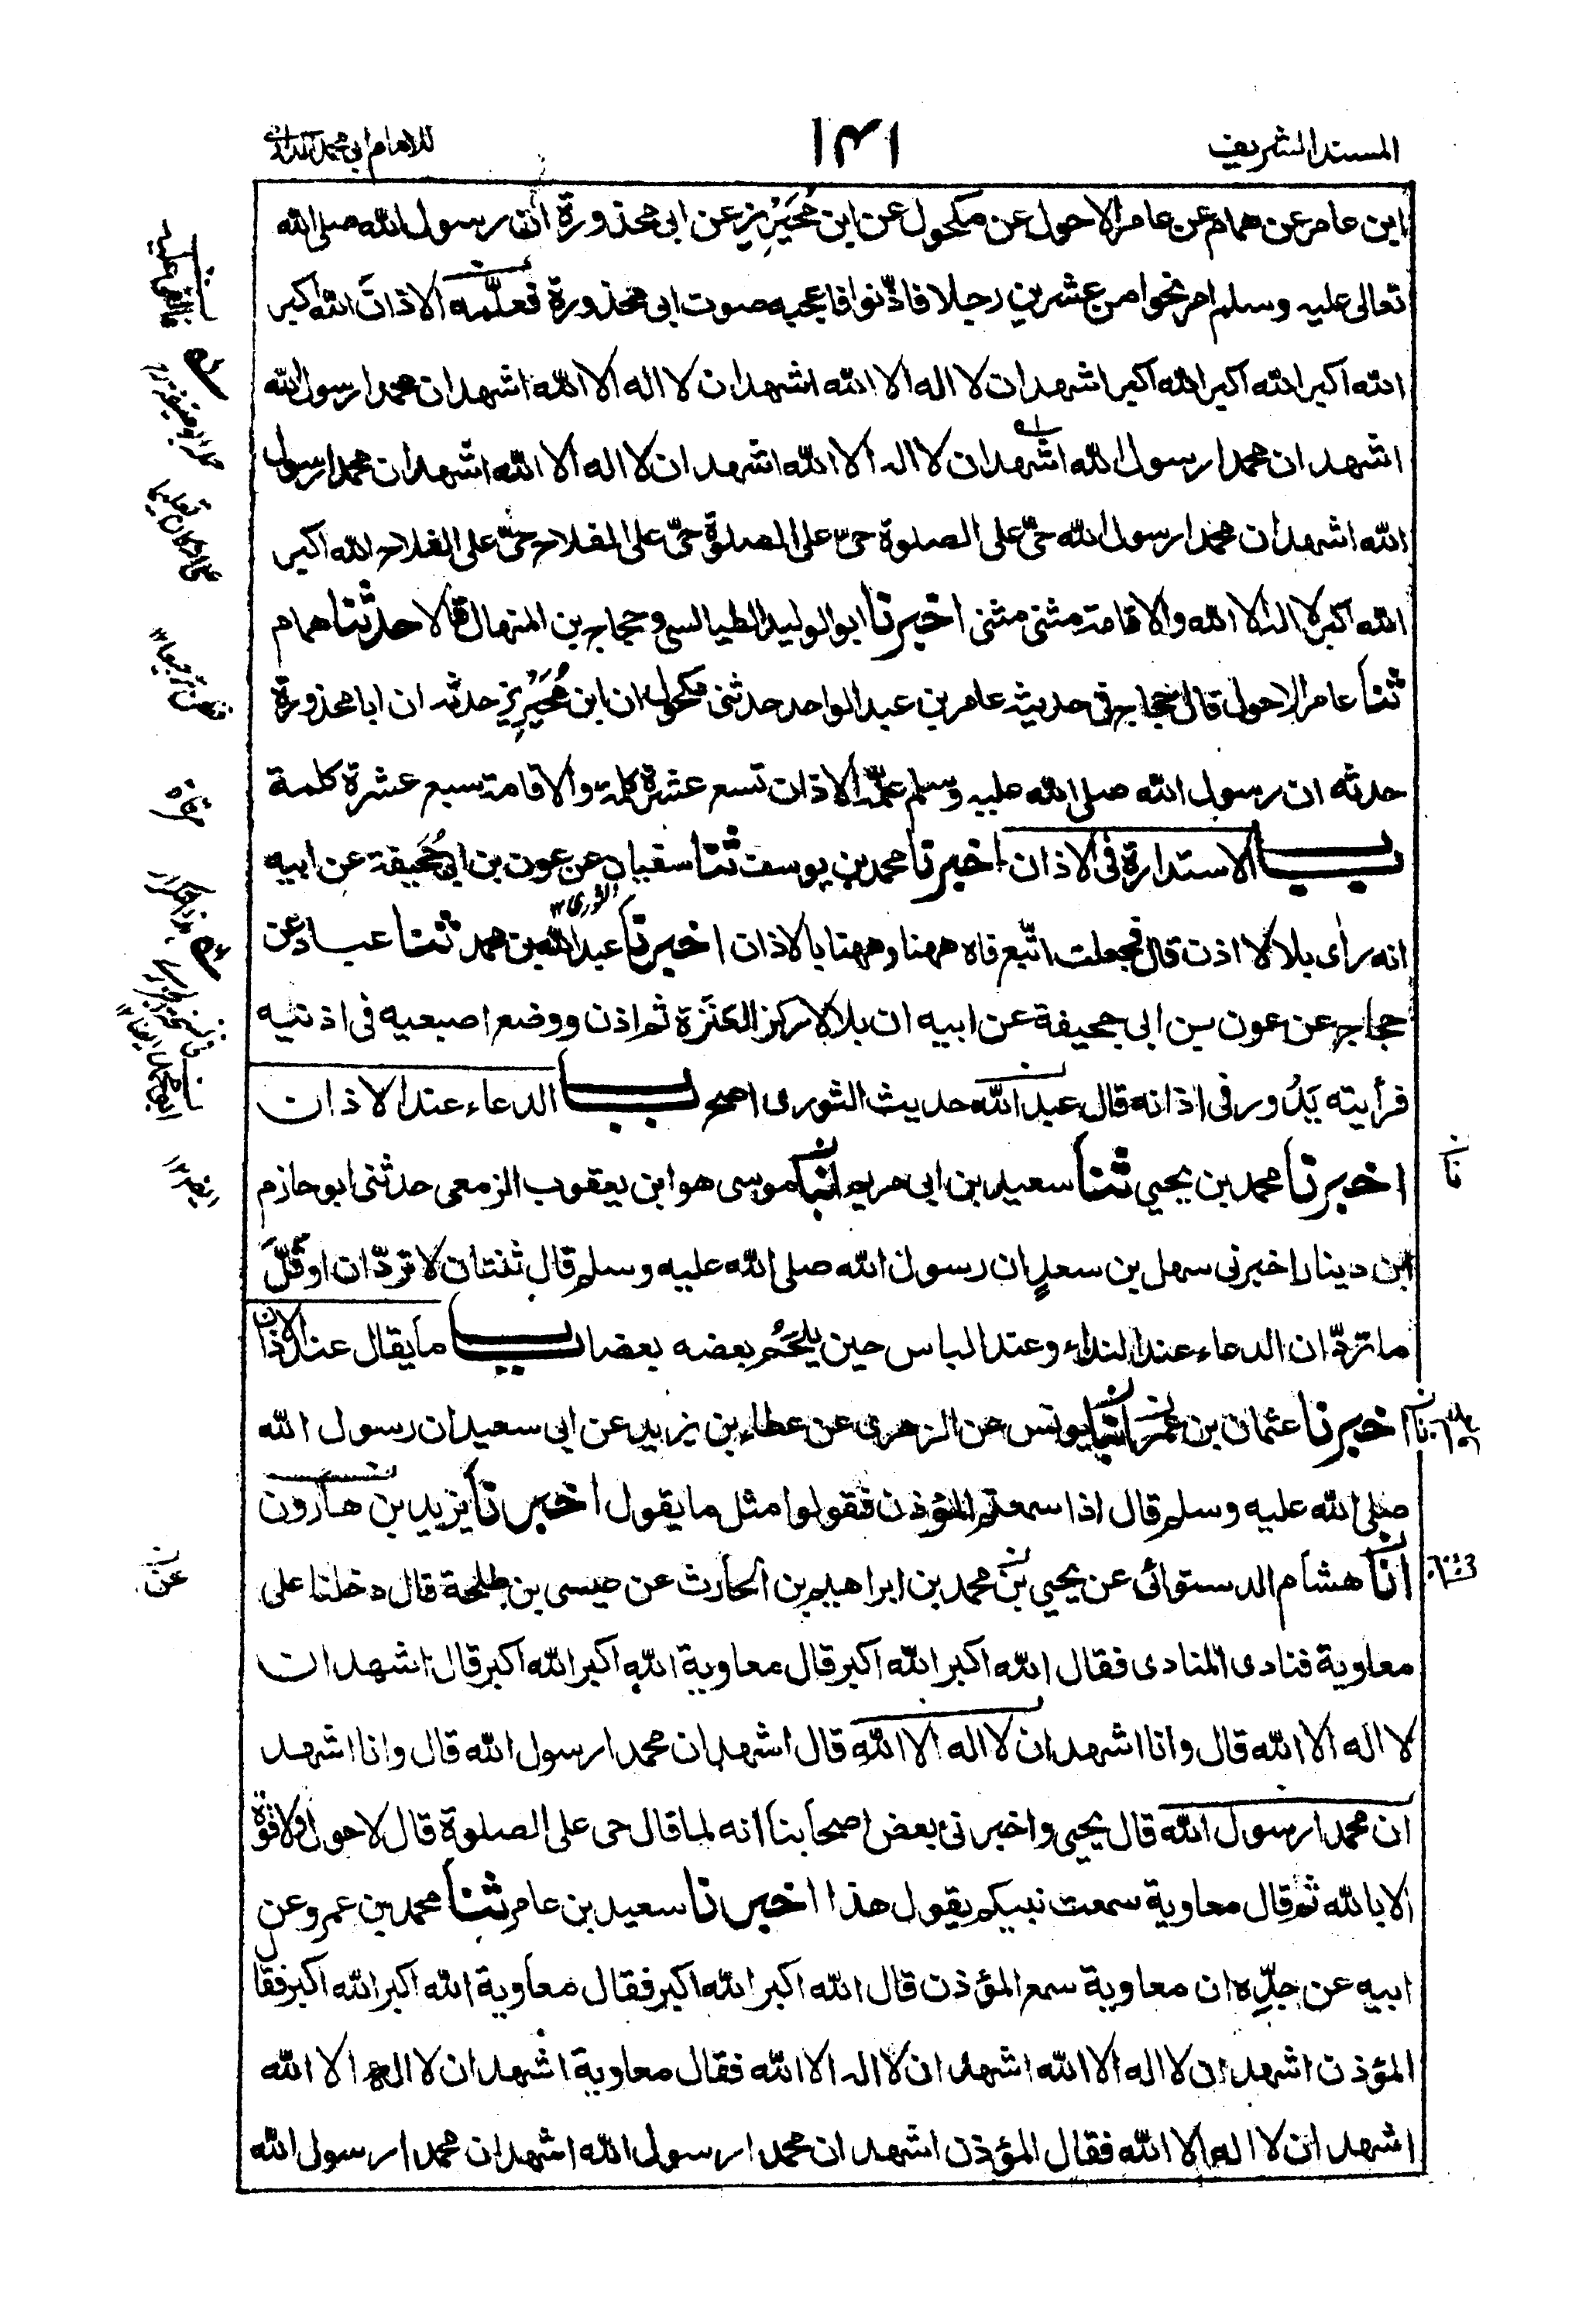 المسند الشريف
١٤١
للامام ابي محمد الدارمي
ابن عامر عن همام عن عامر الاحول عن مكحول عن ابن مُحَيْرِيز عن ابي محذورة ان رسول الله صلى الله
تعالى عليه وسلم امر نحوا من عشرين رجلا فاذّنوا فاعجبه صوت ابي محذورة فعلّمه الاذان الله اكبر
الله اكبر الله اكبر الله اكبر اشهد ان لا اله الا الله اشهد ان لا اله الا الله اشهد ان محمدا رسول الله
اشهد ان محمدا رسول الله اشهد ان لا اله الا الله اشهد ان لا اله الا الله اشهد ان محمدا رسول
الله اشهد ان محمدا رسول الله حيّ على الصلوة حيّ على الصلوة حيّ على الفلاح حيّ على الفلاح الله اكبر
الله اكبر لا اله الا الله والاقامة مثنى مثنى اخبرنا ابو الوليد الطيالسي وحجاج بن المنهال قالا حدثنا همام
ثنا عامر الاحول قال حجاج في حديثه عامر بن عبد الواحد حدثني مكحول ان ابن مُحَيْرِيز حدثه ان ابا محذورة
حدثه ان رسول الله صلى الله عليه وسلم علّمه الاذان تسع عشرة كلمة والاقامة سبع عشرة كلمة
باب الاستدارة في الاذان اخبرنا محمد بن يوسف ثنا سفيان عن عون بن ابي جُحَيفة عن ابيه
الثوري ١٢
انه رأى بلالا اذن قال فجعلت اتّبع فاه ههنا وههنا بالاذان اخبرنا عبد الله بن محمد ثنا عباد عن
حجاج عن عون بن ابي جحيفة عن ابيه ان بلالا ركز العَنَزَة ثم اذن ووضع اصبعيه في اذنيه
فرأيته يَدُور في اذانه قال عبد الله حديث الثوري اصح باب الدعاء عند الاذان
اخبرنا محمد بن يحيي ثنا سعيد بن ابي مريم انبأ موسى هو ابن يعقوب الزمعي حدثني ابو حازم
ابن دينار اخبرني سهل بن سعدٍ ان رسول الله صلى الله عليه وسلم قال ثنتان لا تردّان او قَلّ
ما تردّان الدعاء عند النداء وعند الباس حين يلحَمُ بعضه بعضا باب ما يقال عند الاذان
اخبرنا عثمان بن عمر انبأ يونس عن الزهري عن عطاء بن يزيد عن ابي سعيد ان رسول الله
صلى الله عليه وسلم قال اذا سمعتم المؤذن فقولوا مثل ما يقول اخبرنا يزيد بن هارون
انا هشام الدستوائي عن يحيي بن محمد بن ابراهيم بن الحارث عن عيسى بن طلحة قال دخلنا على
عن
معاوية فنادى المنادى فقال الله اكبر الله اكبر قال معاوية الله اكبر الله اكبر قال اشهد ان
لا اله الا الله قال وانا اشهد ان لا اله الا الله قال اشهد ان محمدا رسول الله قال وانا اشهد
ان محمدا رسول الله قال يحيي واخبرني بعض اصحابنا انه لما قال حي على الصلوة قال لا حول ولا قوة
الا بالله ثم قال معاوية سمعت نبيكم يقول هذا اخبرنا سعيد بن عامر ثنا محمد بن عمرو عن
ابيه عن جدّه ان معاوية سمع المؤذن قال الله اكبر الله اكبر فقال معاوية الله اكبر الله اكبر فقال
المؤذن اشهد ان لا اله الا الله اشهد ان لا اله الا الله فقال معاوية اشهد ان لا اله الا الله
اشهد ان لا اله الا الله فقال المؤذن اشهد ان محمدا رسول الله اشهد ان محمدا رسول الله